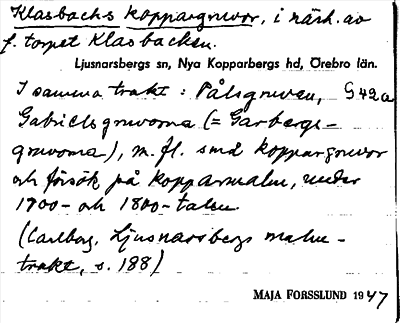 Klasbacks koppargruvor, i närh. av
f. torpet Klasbacken.
Ljusnarsbergs sn, Nya Kopparbergs hd, Örebro län.
I samma trakt: Pålsgruvan, G 42a
Gabrielsgruvorna (= Garbergs-
gruvorna), m. fl. små koppargruvor
och försök på kopparmalm, under
1700- och 1800-talen
(Carlborg, Ljusnarsbergs malm-
trakt, s. 188)
MAJA FORSSLUND 1947